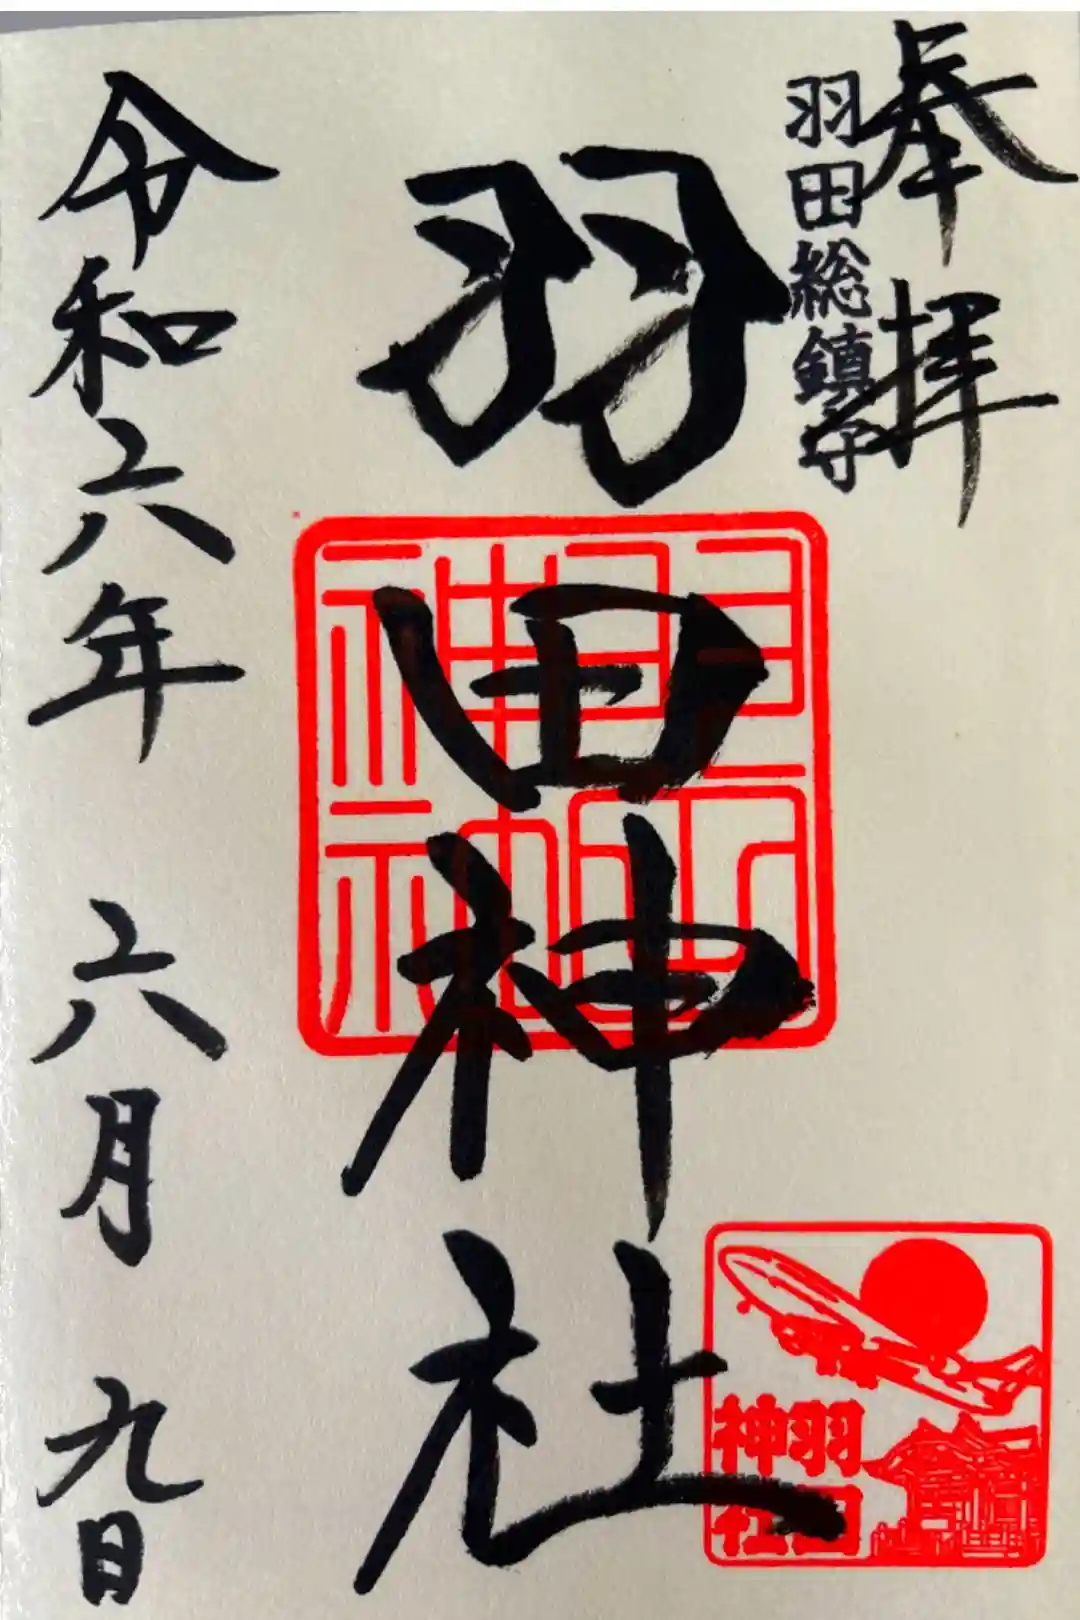 奉拝
羽田総鎮守
羽田神社
令和六年 六月 九日
羽田神社
羽田
神社